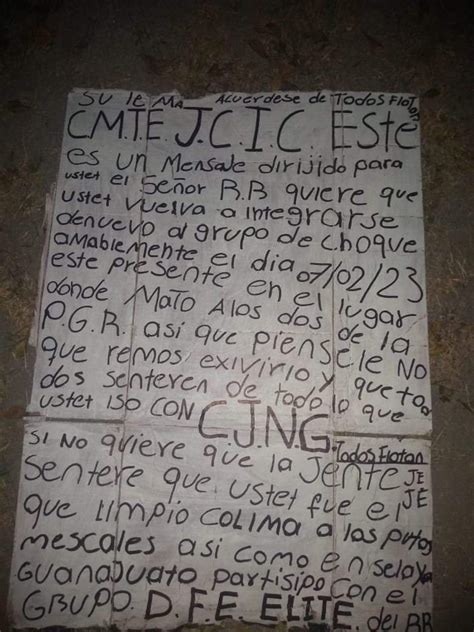 SU le MA Acuerdese de Todos Flotan
C.M.T.E J.C.I.C. Este
es un Mensaje dirijido para
ustet el Señor R.B quiere que
ustet vuelva a integrarse
denuevo al grupo de choque
amablemente el dia 07/02/23
este presente en el lugar
donde Mato A los dos de la
P.G.R. asi que piensele No
que remos exivirlo y que to
dos senteren de todo lo que
ustet iso CON C.J.N.G.
Todos Flotan
Si No quiere que la jente JE
sentere que ustet fue el JE
que limpio colima a los putos
mescales asi como en selaya
Guanajuato partisipo con el
GRUPO. D.F.E ELITE. del RB